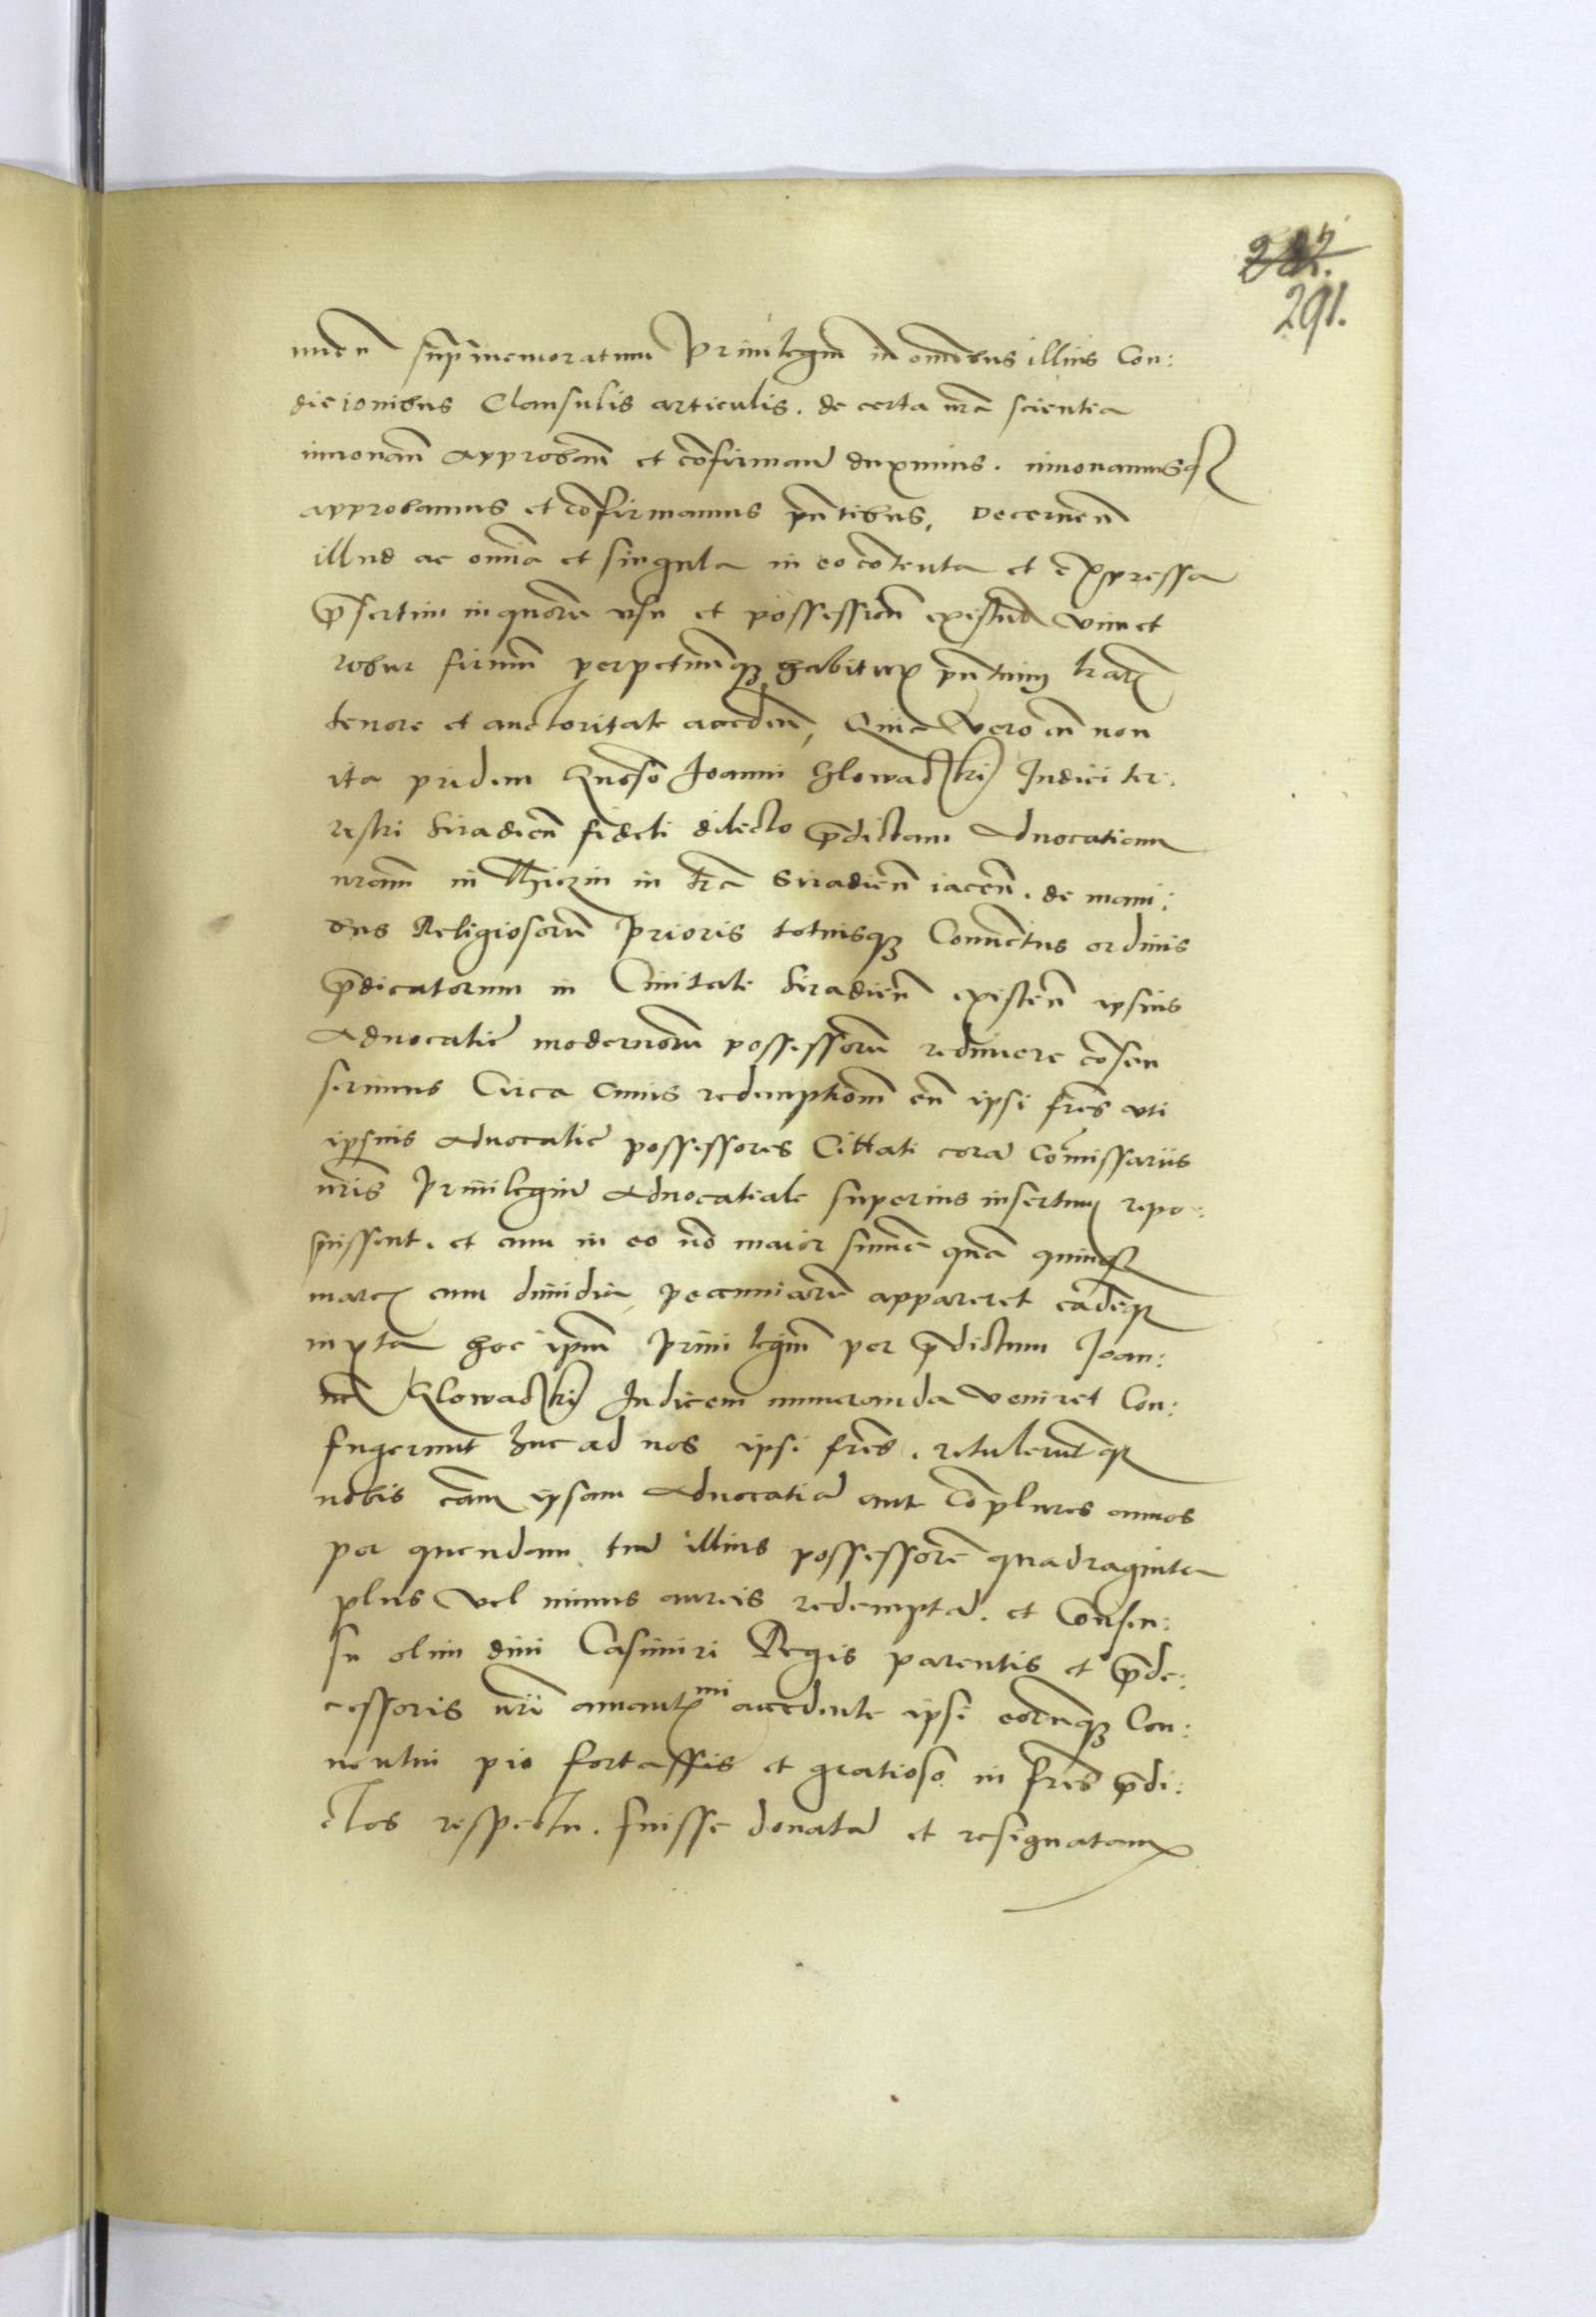 282.
291.
nuen supmemoratum Privilegiu in omnibus illius Con:
dicionibus Clausulis articulis. de certa nra scientia
innovan approban et cofirmand duximus. innovamusq
approbamus et cofirmamus pntibus, Decernen
illud ac omnia et singula in eo cotenta et expressa
psertim in quoru usu et possession existunt vim et
robur firmu perpetuuq habitur pntium lrar
tenore et auctoritate acceden, Quia vero cu non
ita pridem Gnoso Joanni Glowaczki Judici ter:
restri Siradien fideli dilecto pdictam Advocatiam
nram in in tra Siradien iacen. de mani:
bus Religiosoru Prioris totiusq Conventus ordinis
pdicatorum in Civitate Siradien existen ipsius
Advocatie modernoru possessoru redimere cosen
serimus Circa cuius redemptiom cu ipsi fres uti
ipsius advocatie possessores Cittati cora Comissariis
nris Privilegiu advocatiale superius insertum repo:
suissent. et cum in eo no maior sume qua quinq
marcs cum dimidia, pecuniaru appareret eadeq
iuxta hoc ipm Privilegiu per pdictum Joan:
ne Glowaczki Judicem numeranda veniret Con:
fugerunt huc ad nos ipsi fres. retuleruntq
nobis eam ipsam Advocatia ante coplures annos
per quendam tu illius possessore quadraginta
plus vel minus aureis redempta. et Consen:
su olim divi Casimiri Regis parentis et pde:
cessoris nri amantmi accedente ipsi eoruq Con:
ventui pio fortassis et gratioso in fres pdi:
ctos respectu. fuisse donata et resignatam